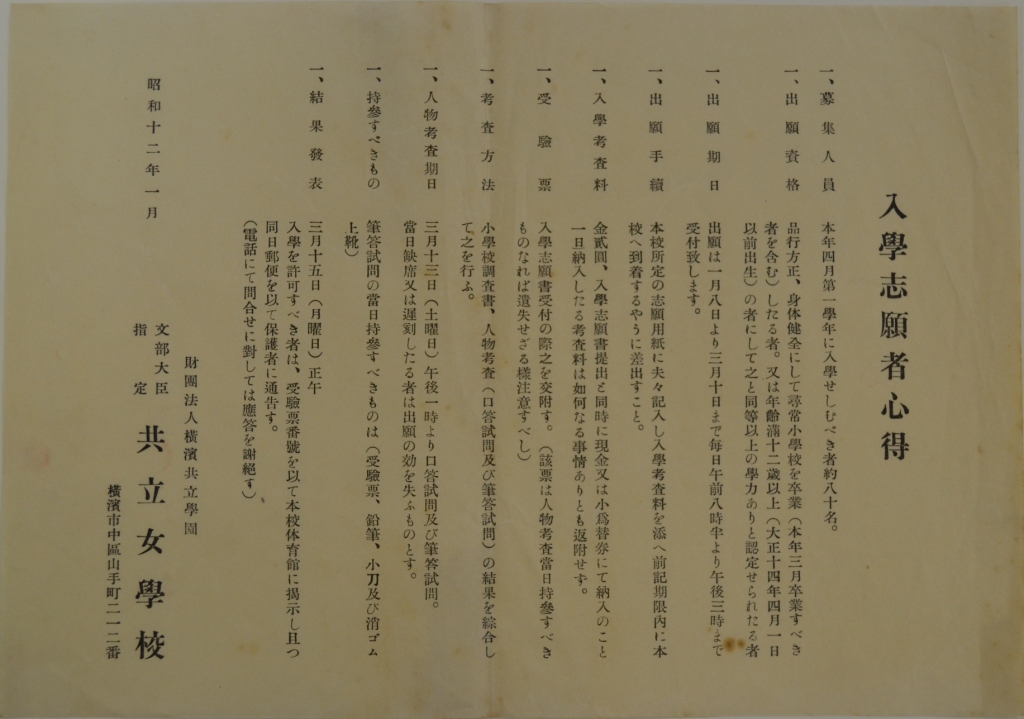 入學志願者心得
一、募集人員　本年四月第一學年に入學せしむべき者約八十名。
一、出願資格　品行方正、身体健全にして尋常小學校を卒業（本年三月卒業すべき
者を含む）したる者。又は年齡滿十二歲以上（大正十四年四月一日
以前出生）の者にして之と同等以上の學力ありと認定せられたる者
一、出願期日　出願は一月八日より三月十日まで每日午前八時半より午後三時まで
受付致します。
一、出願手續　本校所定の志願用紙に夫々記入し入學考査料を添へ前記期限內に本
校へ到着するやうに差出すこと。
一、入學考査料　金貳圓、入學志願書提出と同時に現金又は小爲替券にて納入のこと
一旦納入したる考査料は如何なる事情ありとも返附せず。
一、受驗票　入學志願書受付の際之を交附す。（該票は人物考査當日持參すべき
ものなれば遺失せざる樣注意すべし）
一、考査方法　小學校調査書、人物考査（口答試問及び筆答試問）の結果を綜合し
て之を行ふ。
一、人物考査期日　三月十三日（土曜日）午後一時より口答試問及び筆答試問。
當日缺席又は遲刻したる者は出願の効を失ふものとす。
一、持參すべきもの　筆答試問の當日持參すべきものは（受驗票、鉛筆、小刀及び消ゴム
上靴）
一、結果發表　三月十五日（月曜日）正午
入學を許可すべき者は、受驗票番號を以て本校体育館に揭示し且つ
同日郵便を以て保護者に通告す。
（電話にて問合せに對しては應答を謝絕す）
昭和十二年一月
財團法人橫濱共立學園
文部大臣
指定
共立女學校
橫濱市中區山手町二一二番